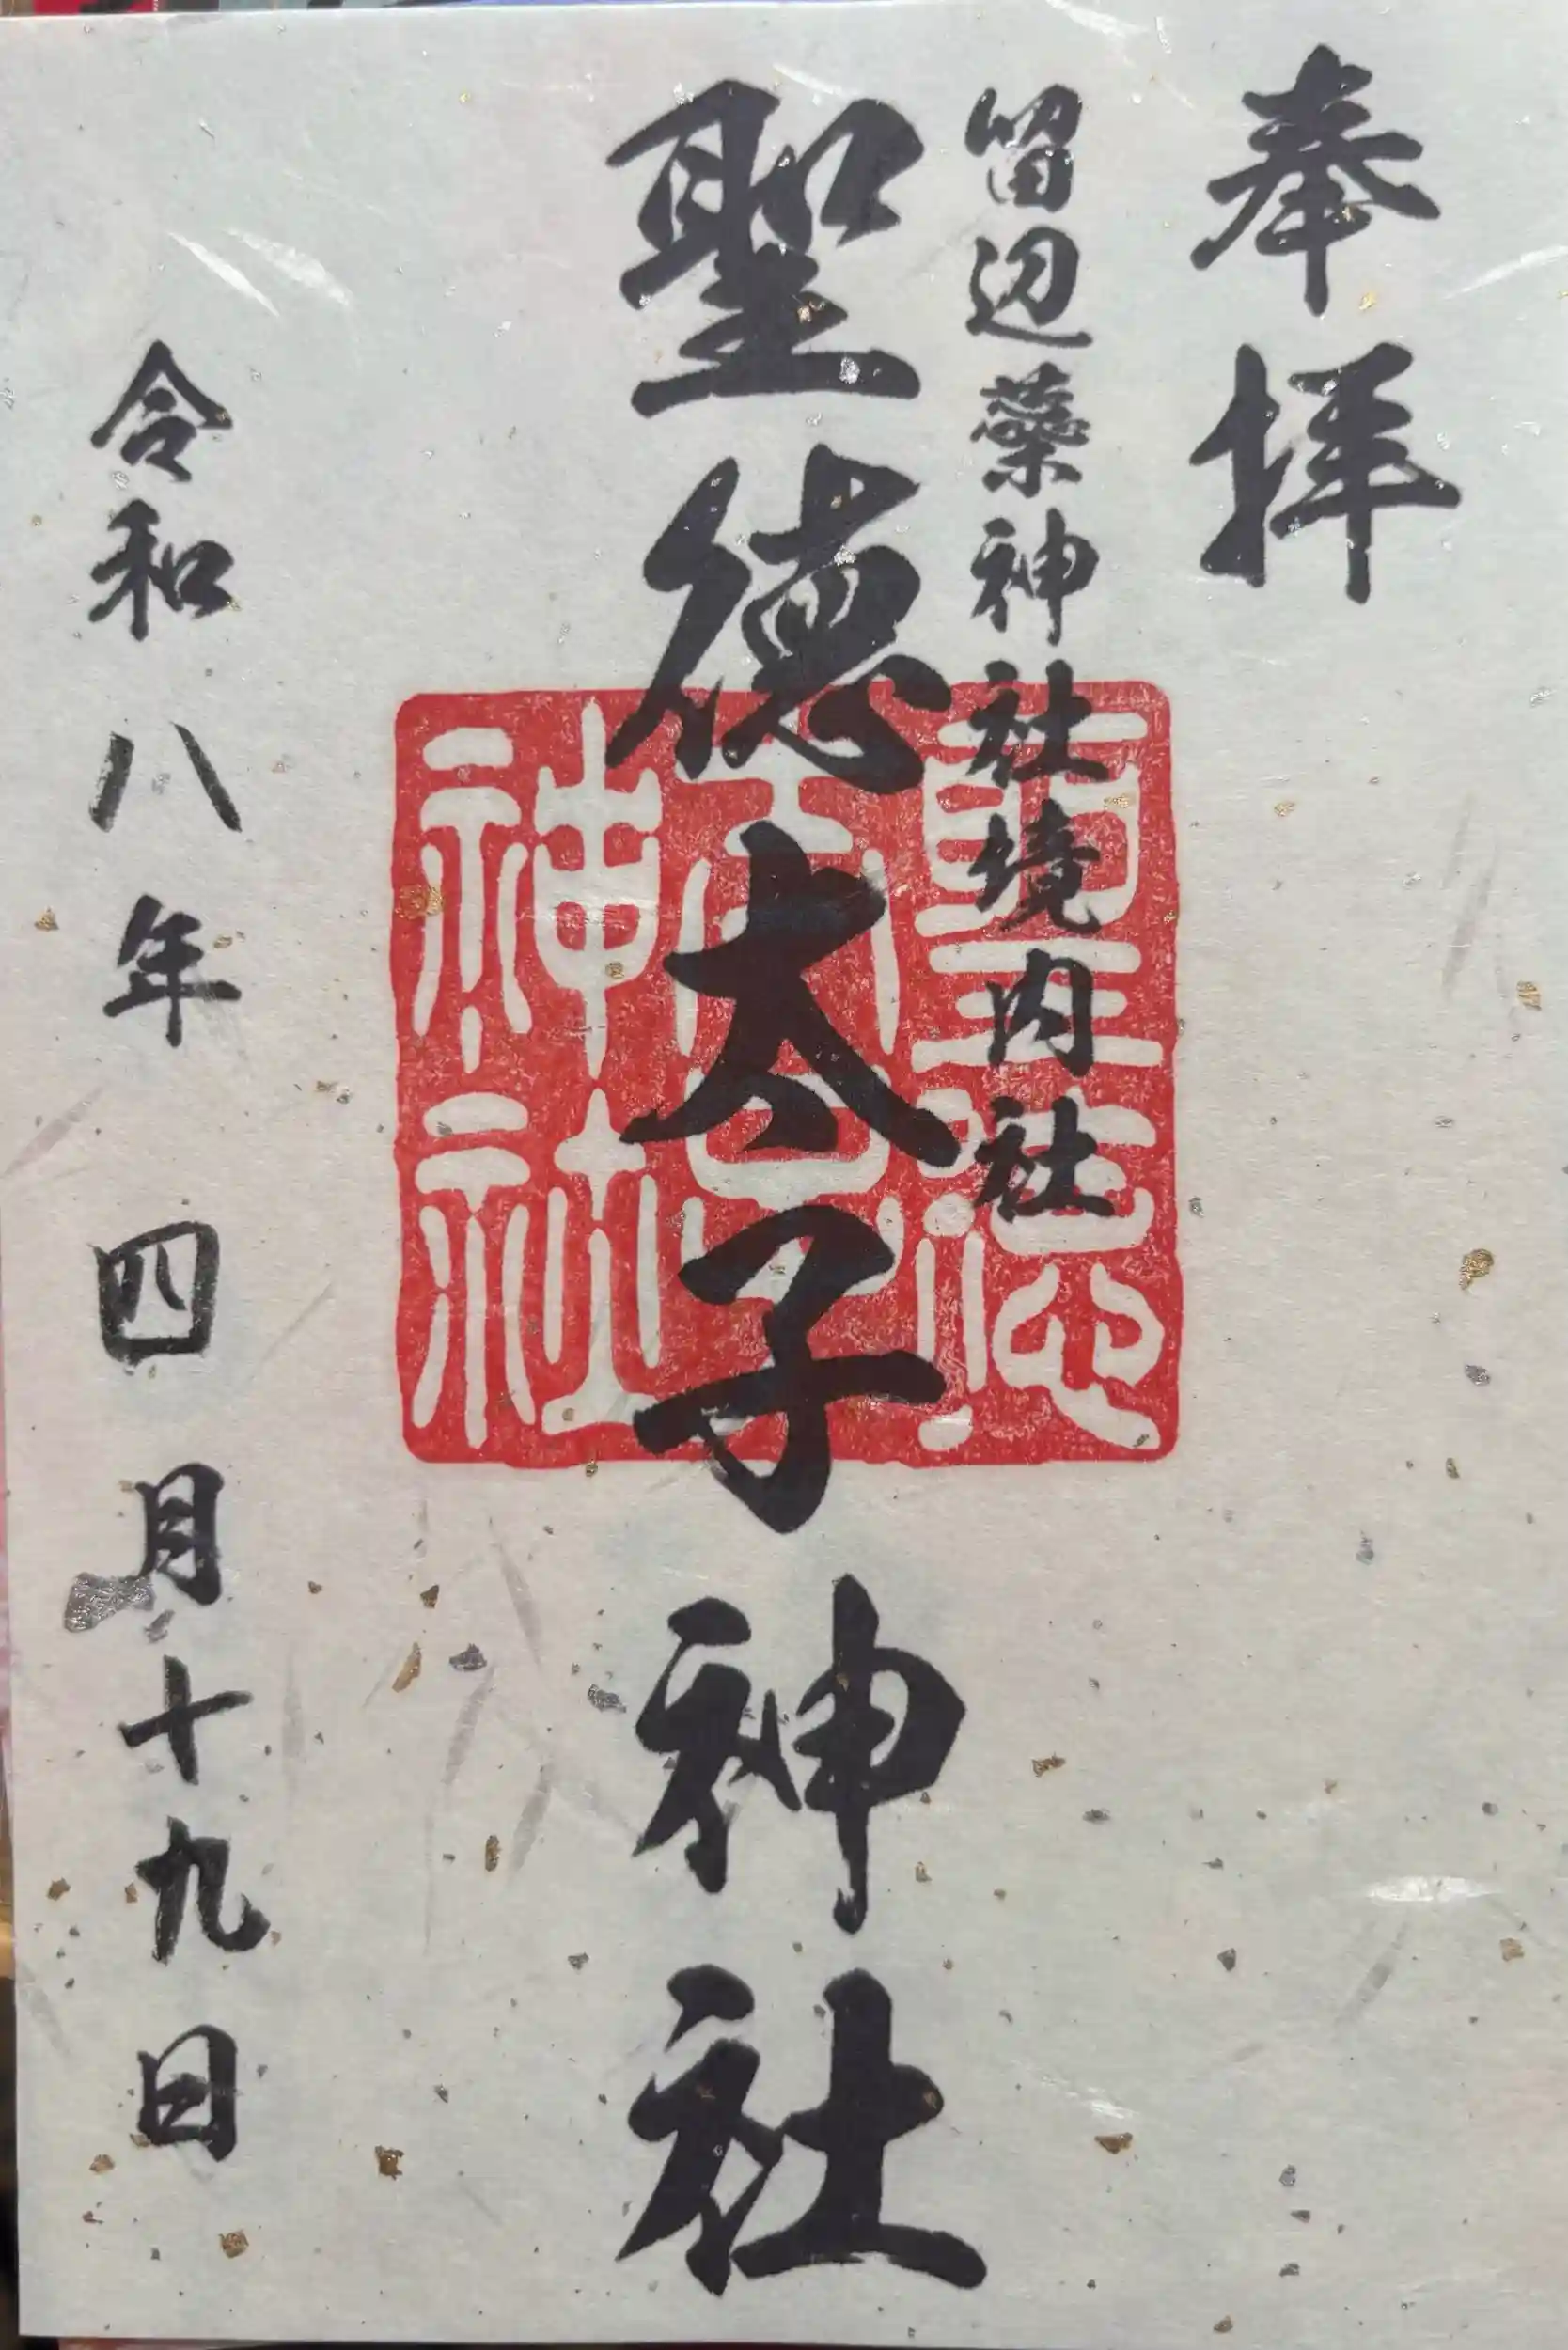 奉拝
留辺蘂神社境内社
聖徳太子神社
聖徳
太子
神社
令和八年四月十九日